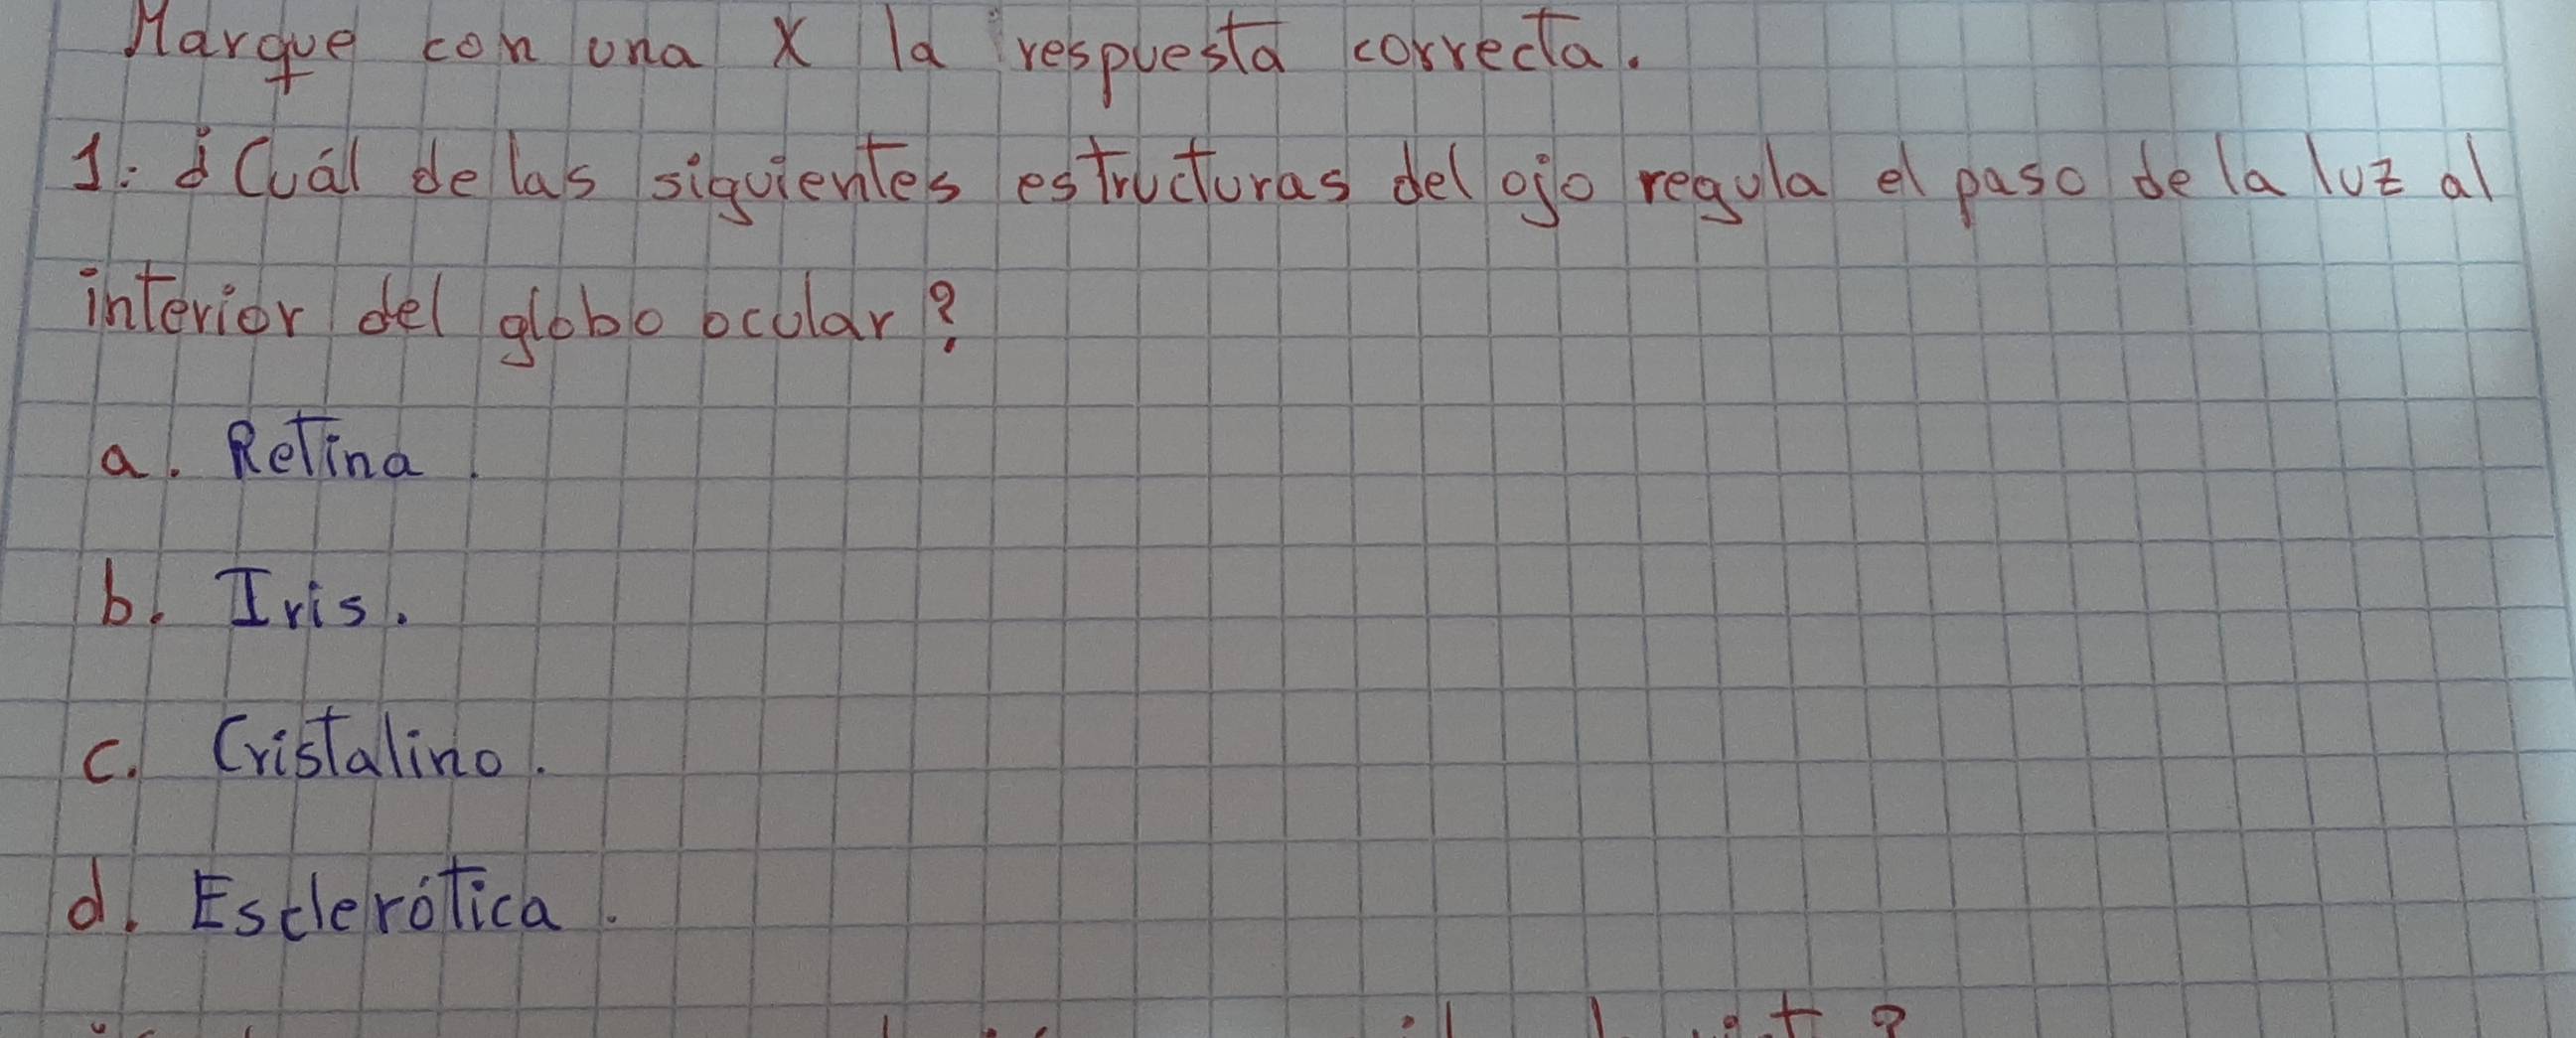 Marque con una X la respuesta correcta.
1. ¿Cuál de las siguientes estructuras del ojo regula el paso de la luz al
interior del globo ocular?
a. Retina.
b. Iris.
c. Cristalino.
d. Esclerótica.